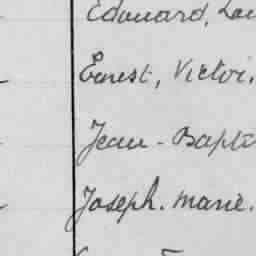 Edouard, Lou
Ernest, Victor.
Jean-Bapti
Joseph. Marie.